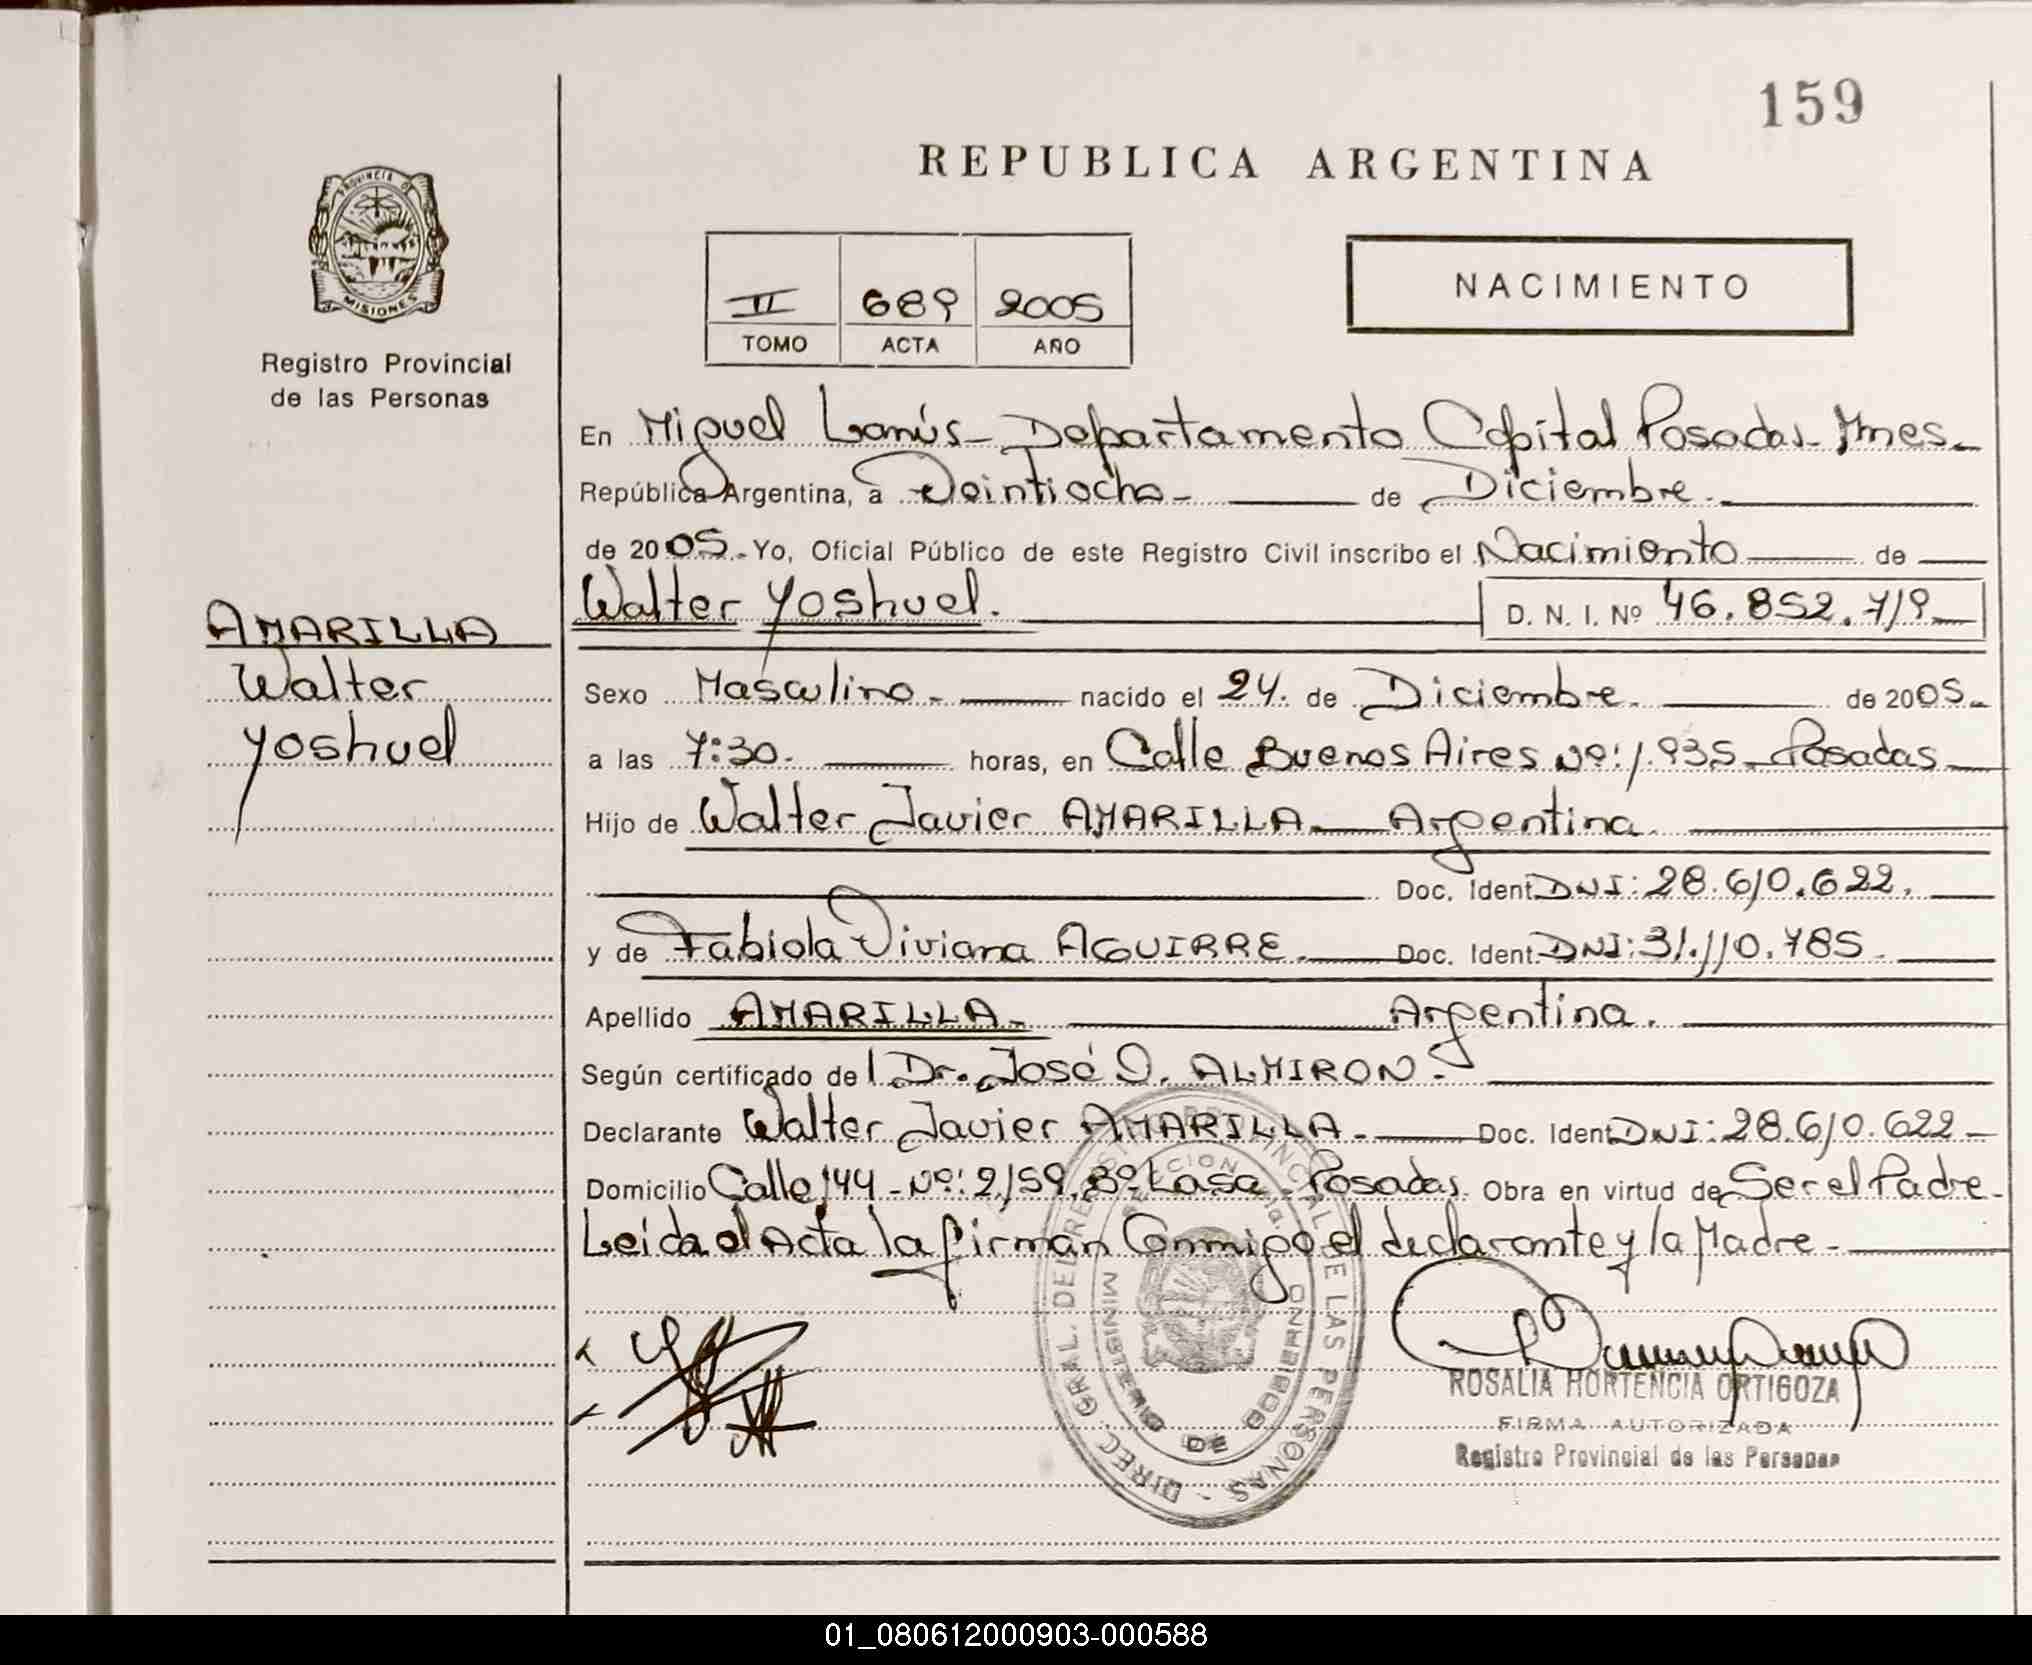 159
REPUBLICA ARGENTINA
PROVINCIA DE
MISIONES
Registro Provincial
de las Personas
II 689 2005
TOMO ACTA AÑO
NACIMIENTO
En Miguel Lanús - Departamento Capital Posadas - Mnes -
República Argentina, a Veintiocho - de Diciembre.
de 2005. - Yo, Oficial Público de este Registro Civil inscribo el Nacimiento de
Walter Yoshuel. D. N. I. Nº 46.852.719
AMARILLA
Walter
Yoshuel
Sexo Masculino - nacido el 24. de Diciembre. de 2005.
a las 7:30. horas, en Calle Buenos Aires Nº: 1.935 - Posadas
Hijo de Walter Javier AMARILLA Argentina.
Doc. Ident DNI: 28.610.622.
y de Fabiola Viviana AGUIRRE. Doc. Ident. DNI: 31.110.785.
Apellido AMARILLA - Argentina.
Según certificado del Dr. José O. ALMIRON.
Declarante Walter Javier AMARILLA. Doc. Ident DNI: 28.610.622 -
Domicilio Calle 144 - Nº: 2159. Bº Lasa - Posadas. Obra en virtud de Ser el Padre -
Leida el Acta la firman Conmigo el declarante y la Madre -
DIREC. GRAL. DEL REGISTRO PROVINCIAL DE LAS PERSONAS -
MINISTERIO DE GOBIERNO
ROSALIA HORTENCIA ORTIGOZA
FIRMA AUTORIZADA
Registro Provincial de las Personas
01_080612000903-000588